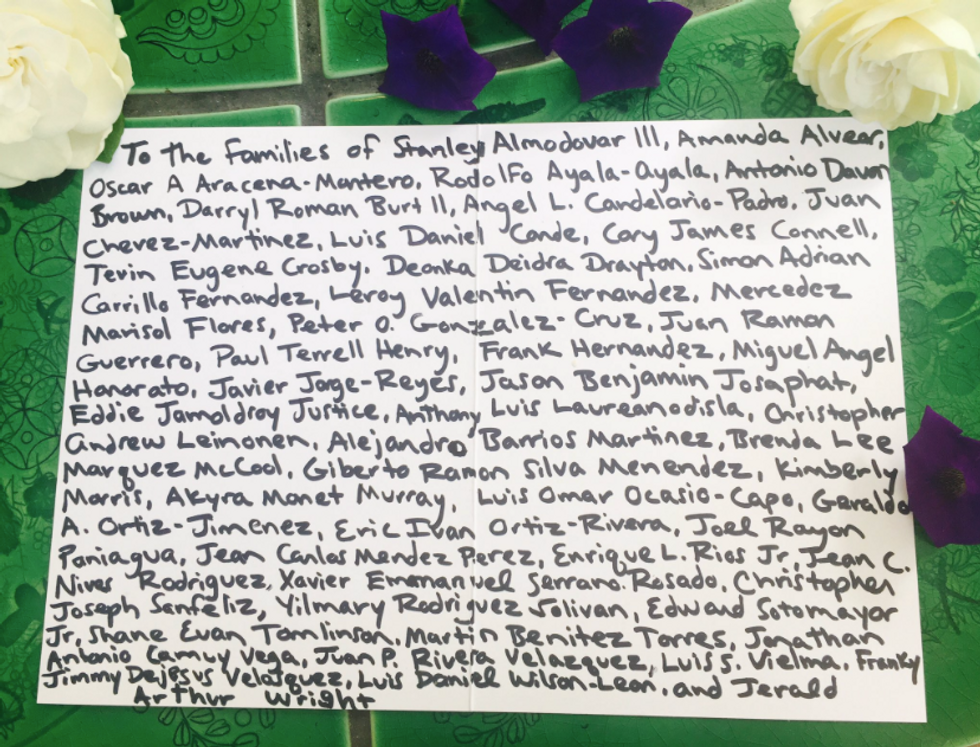 To the Families of Stanley Almodovar III, Amanda Alvear,
Oscar A Aracena-Montero, Rodolfo Ayala-ayala, Antonio Davon
Brown, Darryl Roman Burt II, Angel L. Candelario-Padro, Juan
Chevez-Martinez, Luis Daniel Conde, Cory James Connell,
Tevin Eugene Crosby, Deonka Deidra Drayton, Simon Adrian
Carrillo Fernandez, Leroy Valentin Fernandez, Mercedez
Marisol Flores, Peter O. Gonzalez-Cruz, Juan Ramon
Guerrero, Paul Terrell Henry, Frank Hernandez, Miguel Angel
Honorato, Javier Jorge-Reyes, Jason Benjamin Josaphat,
Eddie Jamoldroy Justice, Anthony Luis Laureanodisla, Christopher
Andrew Leinonen, Alejandro Barrios Martinez, Brenda Lee
Marquez McCool, Giberto Ramon Silva Menendez, Kimberly
Morris, Akyra Monet Murray, Luis Omar Ocasio-Capo, Geraldo
A. Ortiz-Jimenez, Eric Ivan Ortiz-Rivera, Joel Rayon
Paniagua, Jean Carlos Mendez Perez, Enrique L. Rios Jr, Jean C.
Nives Rodriguez, Xavier Emmanuel Serrano Rosado, Christopher
Joseph Sanfeliz, Yilmary Rodriguez Solivan, Edward Sotomayor
Jr, Shane Evan Tomlinson, Martin Benitez Torres, Jonathan
Antonio Camuy Vega, Juan P. Rivera Velazquez, Luis S. Vielma, Franky
Jimmy Dejesus Velazquez, Luis Daniel Wilson-Leon, and Jerald
Arthur Wright